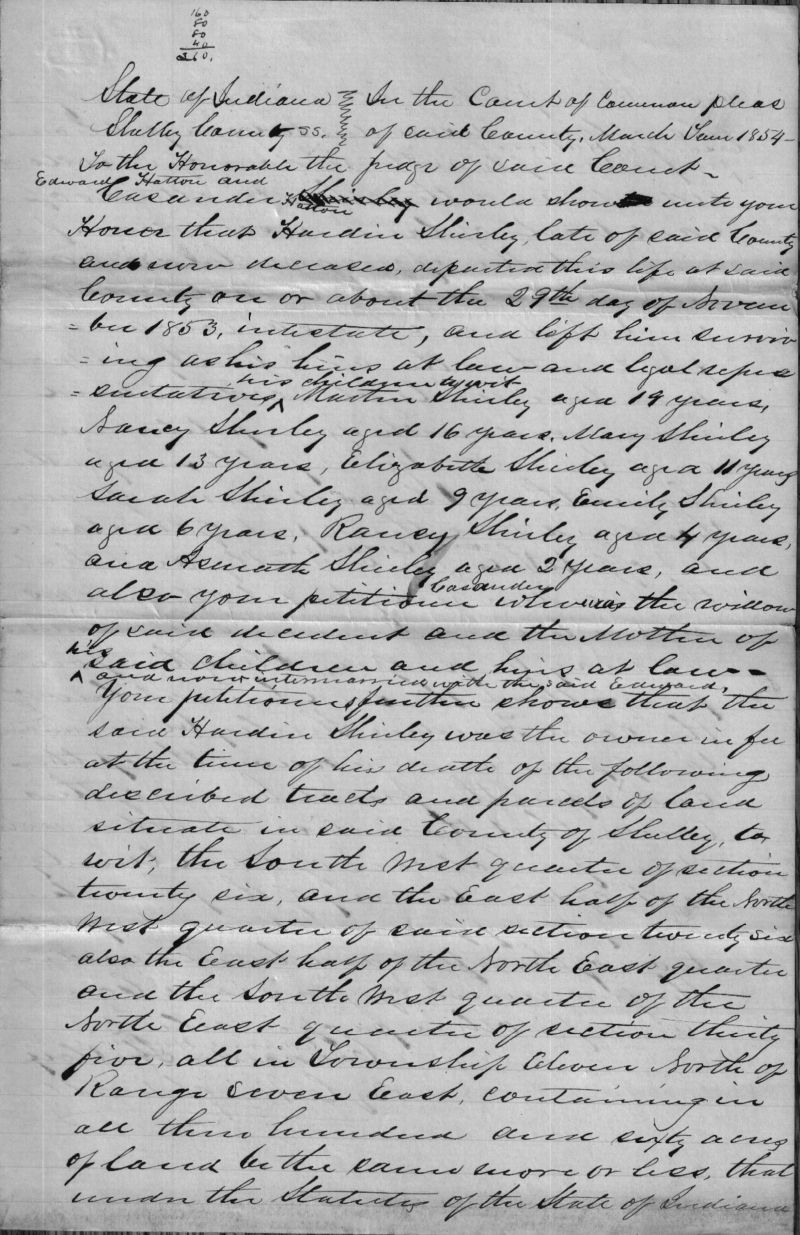 160
80
80
40
360.
State of Indiana In the Court of Common pleas
Shelby County ss. of said County, March Term 1854-
To the Honorable the Judge of said Court-
Edward Hatton and
Casander Hatton Shirley would show unto your
Honor that Hardin Shirley late of said County
and now deceased, departed this life at said
County on or about the 29th day of Novem
=ber 1853, intestate, and left him surviv
=ing as his heirs at law and legal repre
his children to wit
=sentatives, ^ Martin Shirley aged 19 years,
Nancy Shirley aged 16 years, Mary Shirley
aged 13 years, Elizabeth Shirley aged 11 years
Sarah Shirley aged 9 years, Emily Shirley
aged 6 years, Raney Shirley aged 4 years,
and Asenath Shirley aged 2 years, and
also your petitioner Casander who was the widow
of said decedent and the Mother of
his
^ said children and heirs at law-
and now intermarried with the said Edward,
Your petitioners further shows that the
said Hardin Shirley was the owner in fee
at the time of his death of the following
described tracts and parcels of land
situate in said County of Shelby, to
wit; the South West quarter of section
twenty six, and the East half of the North
West quarter of said section twenty six
also the East half of the North East quarter
and the South West quarter of the
North East quarter of section thirty
five, all in Township Eleven North of
Range seven East, containing in
all three hundred and sixty acres
of land be the same more or less, that
under the Statutes of the State of Indiana